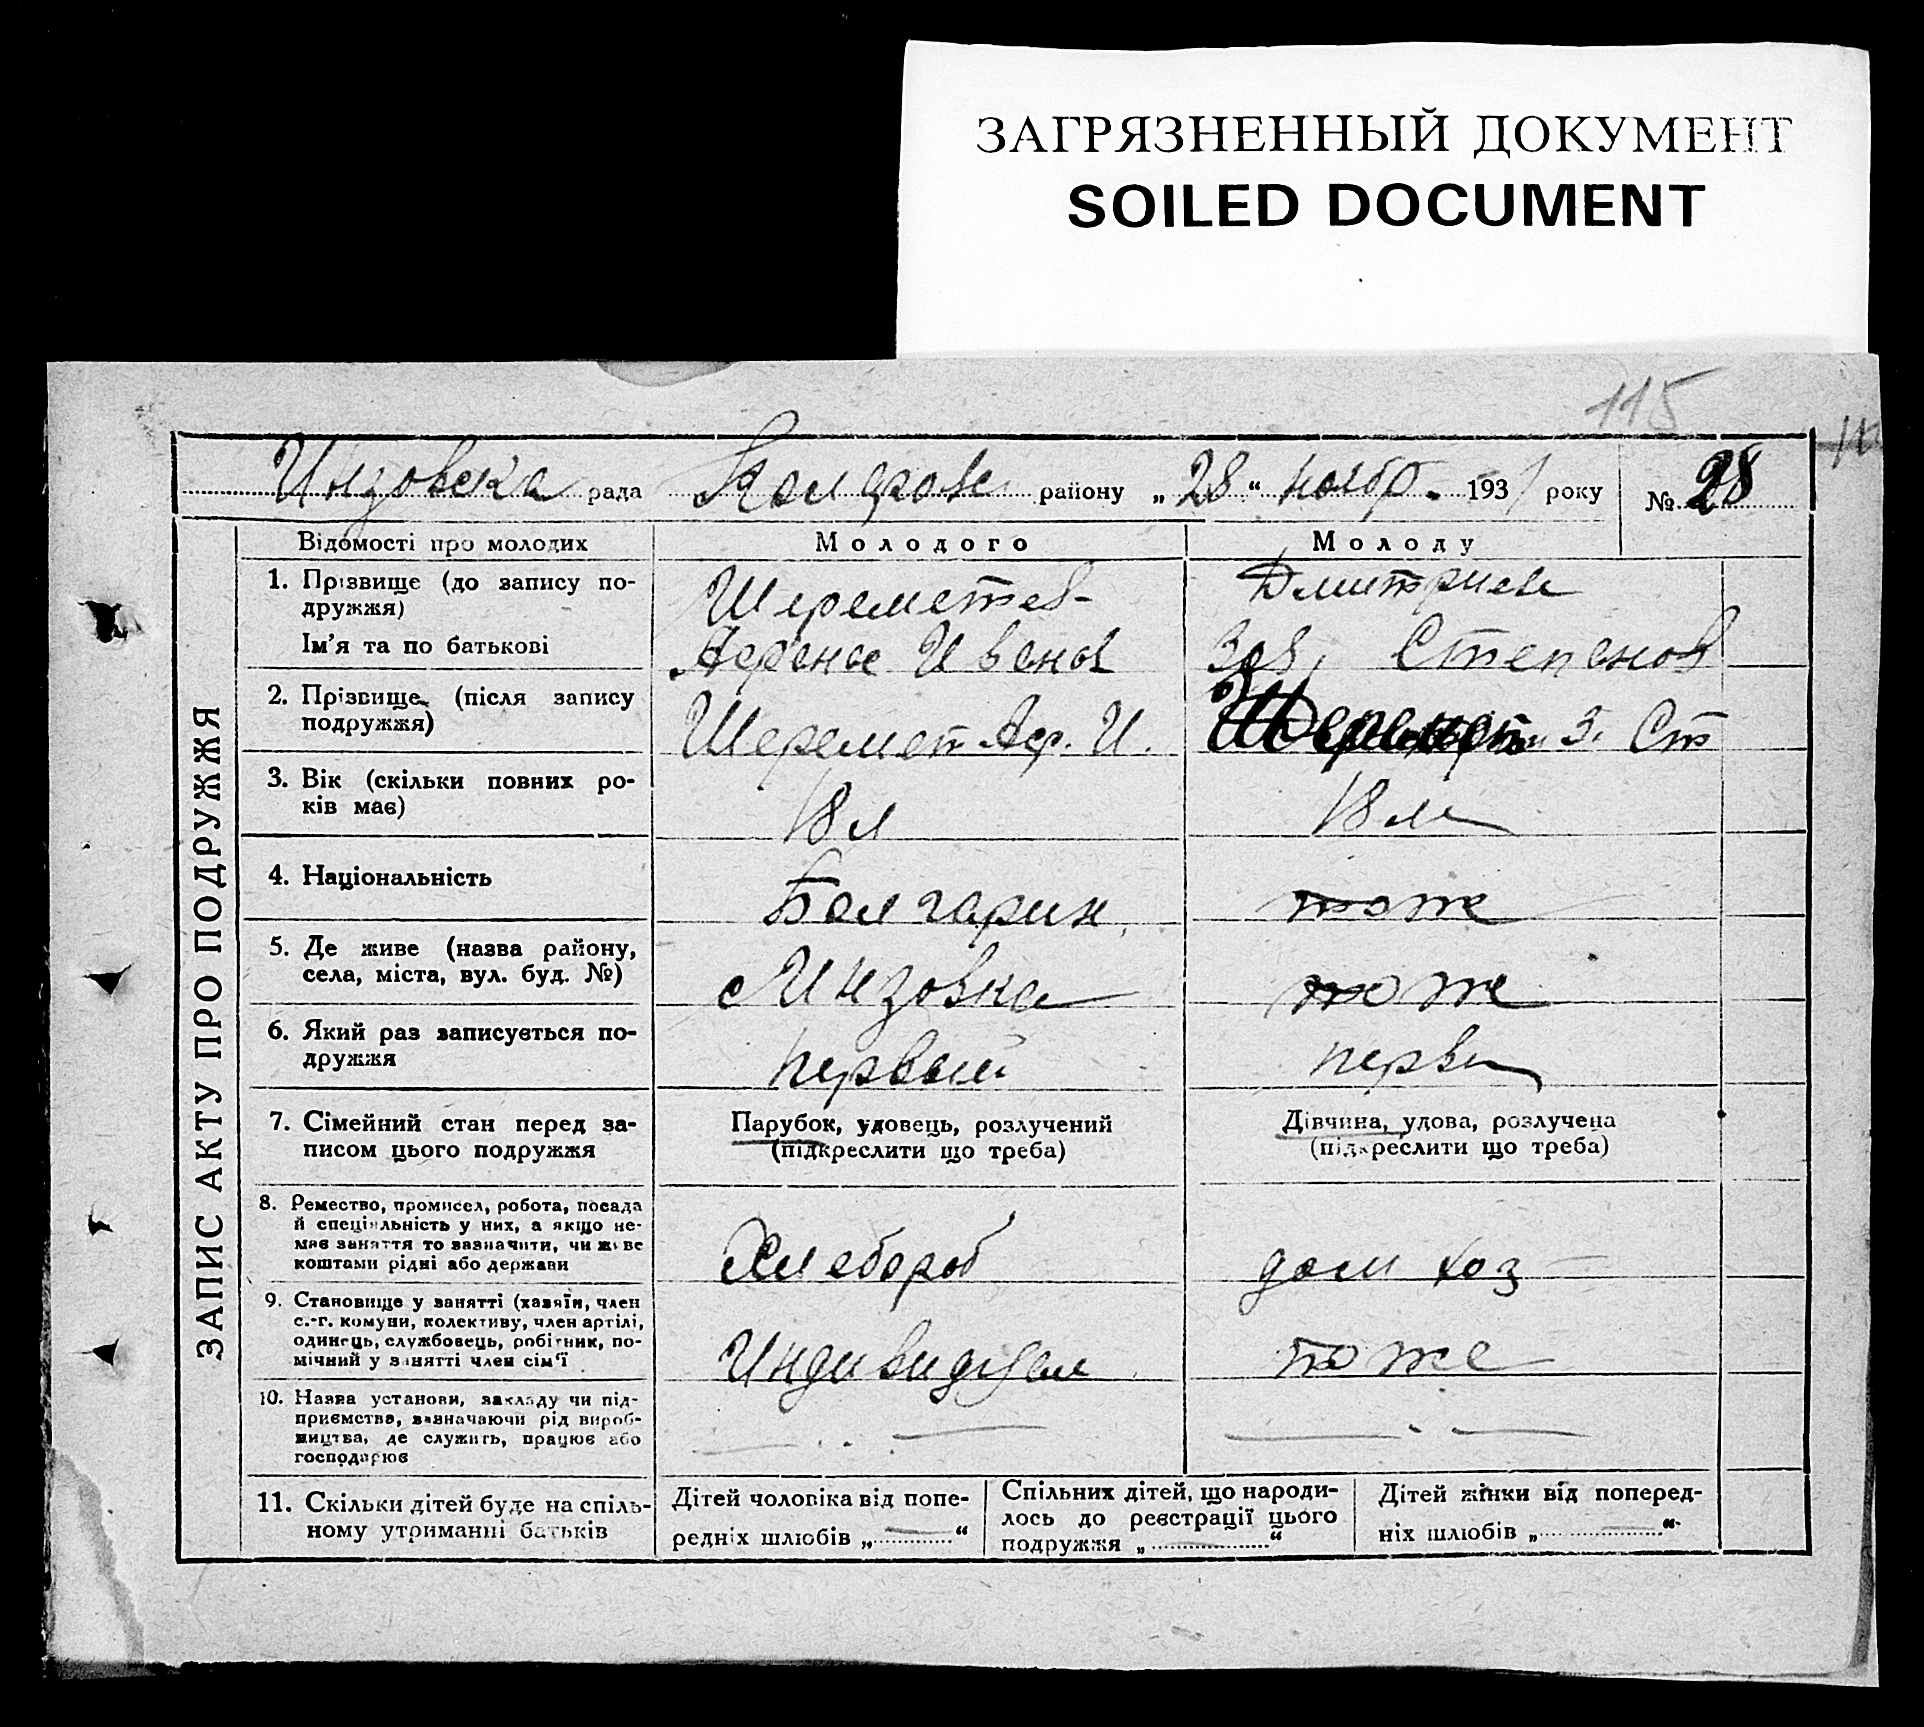 ЗАГРЯЗНЕННЫЙ ДОКУМЕНТ
SOILED DOCUMENT
115
Инзовска рада района „28“ ноябр. 1931 року № 28
ЗАПИС АКТУ ПРО ПОДРУЖЖЯ
Відомості про молодих Молодого Молоду
1. Прізвище (до запису по-
дружжя)
Шереметев Дмитриева
Ім'я та по батькові
Иванов Степанов
2. Прізвище (після запису
подружжя)
Шеремет Аф. И. Шеремет З. Ст
3. Вік (скільки повних ро-
ків має)
18 л 18 л
4. Національність
Болгарин тоже
5. Де живе (назва району,
села, міста, вул. буд. №)
с Инзовка тоже
6. Який раз записується по-
дружжя
первый первы
7. Сімейний стан перед за-
писом цього подружжя
Парубок, удовець, розлучений
(підкреслити що треба)
Дівчина, удова, розлучена
(підкреслити що треба)
8. Ремество, промисел, робота, посада
й спеціяльність у них, а якщо не-
має заняття то зазначити, чи живе
коштами рідні або держави
Хлебороб дом хоз
9. Становище у занятті (хазяїн, член
с.-г. комуни, колективу, член артілі,
одинець, службовець, робітник, по-
мічний у занятті член сім'ї
Индивидуал тоже
10. Назва установи, закладу чи під-
приємства, зазначаючи рід вироб-
ництва, де служить, працює або
господарює
11. Скільки дітей буде на спіль-
ному утриманні батьків
Дітей чоловіка від попе-
редніх шлюбів „ — “
Спільних дітей, що народи-
лось до реєстрації цього
подружжя „ “
Дітей жінки від поперед-
ніх шлюбів „ — “